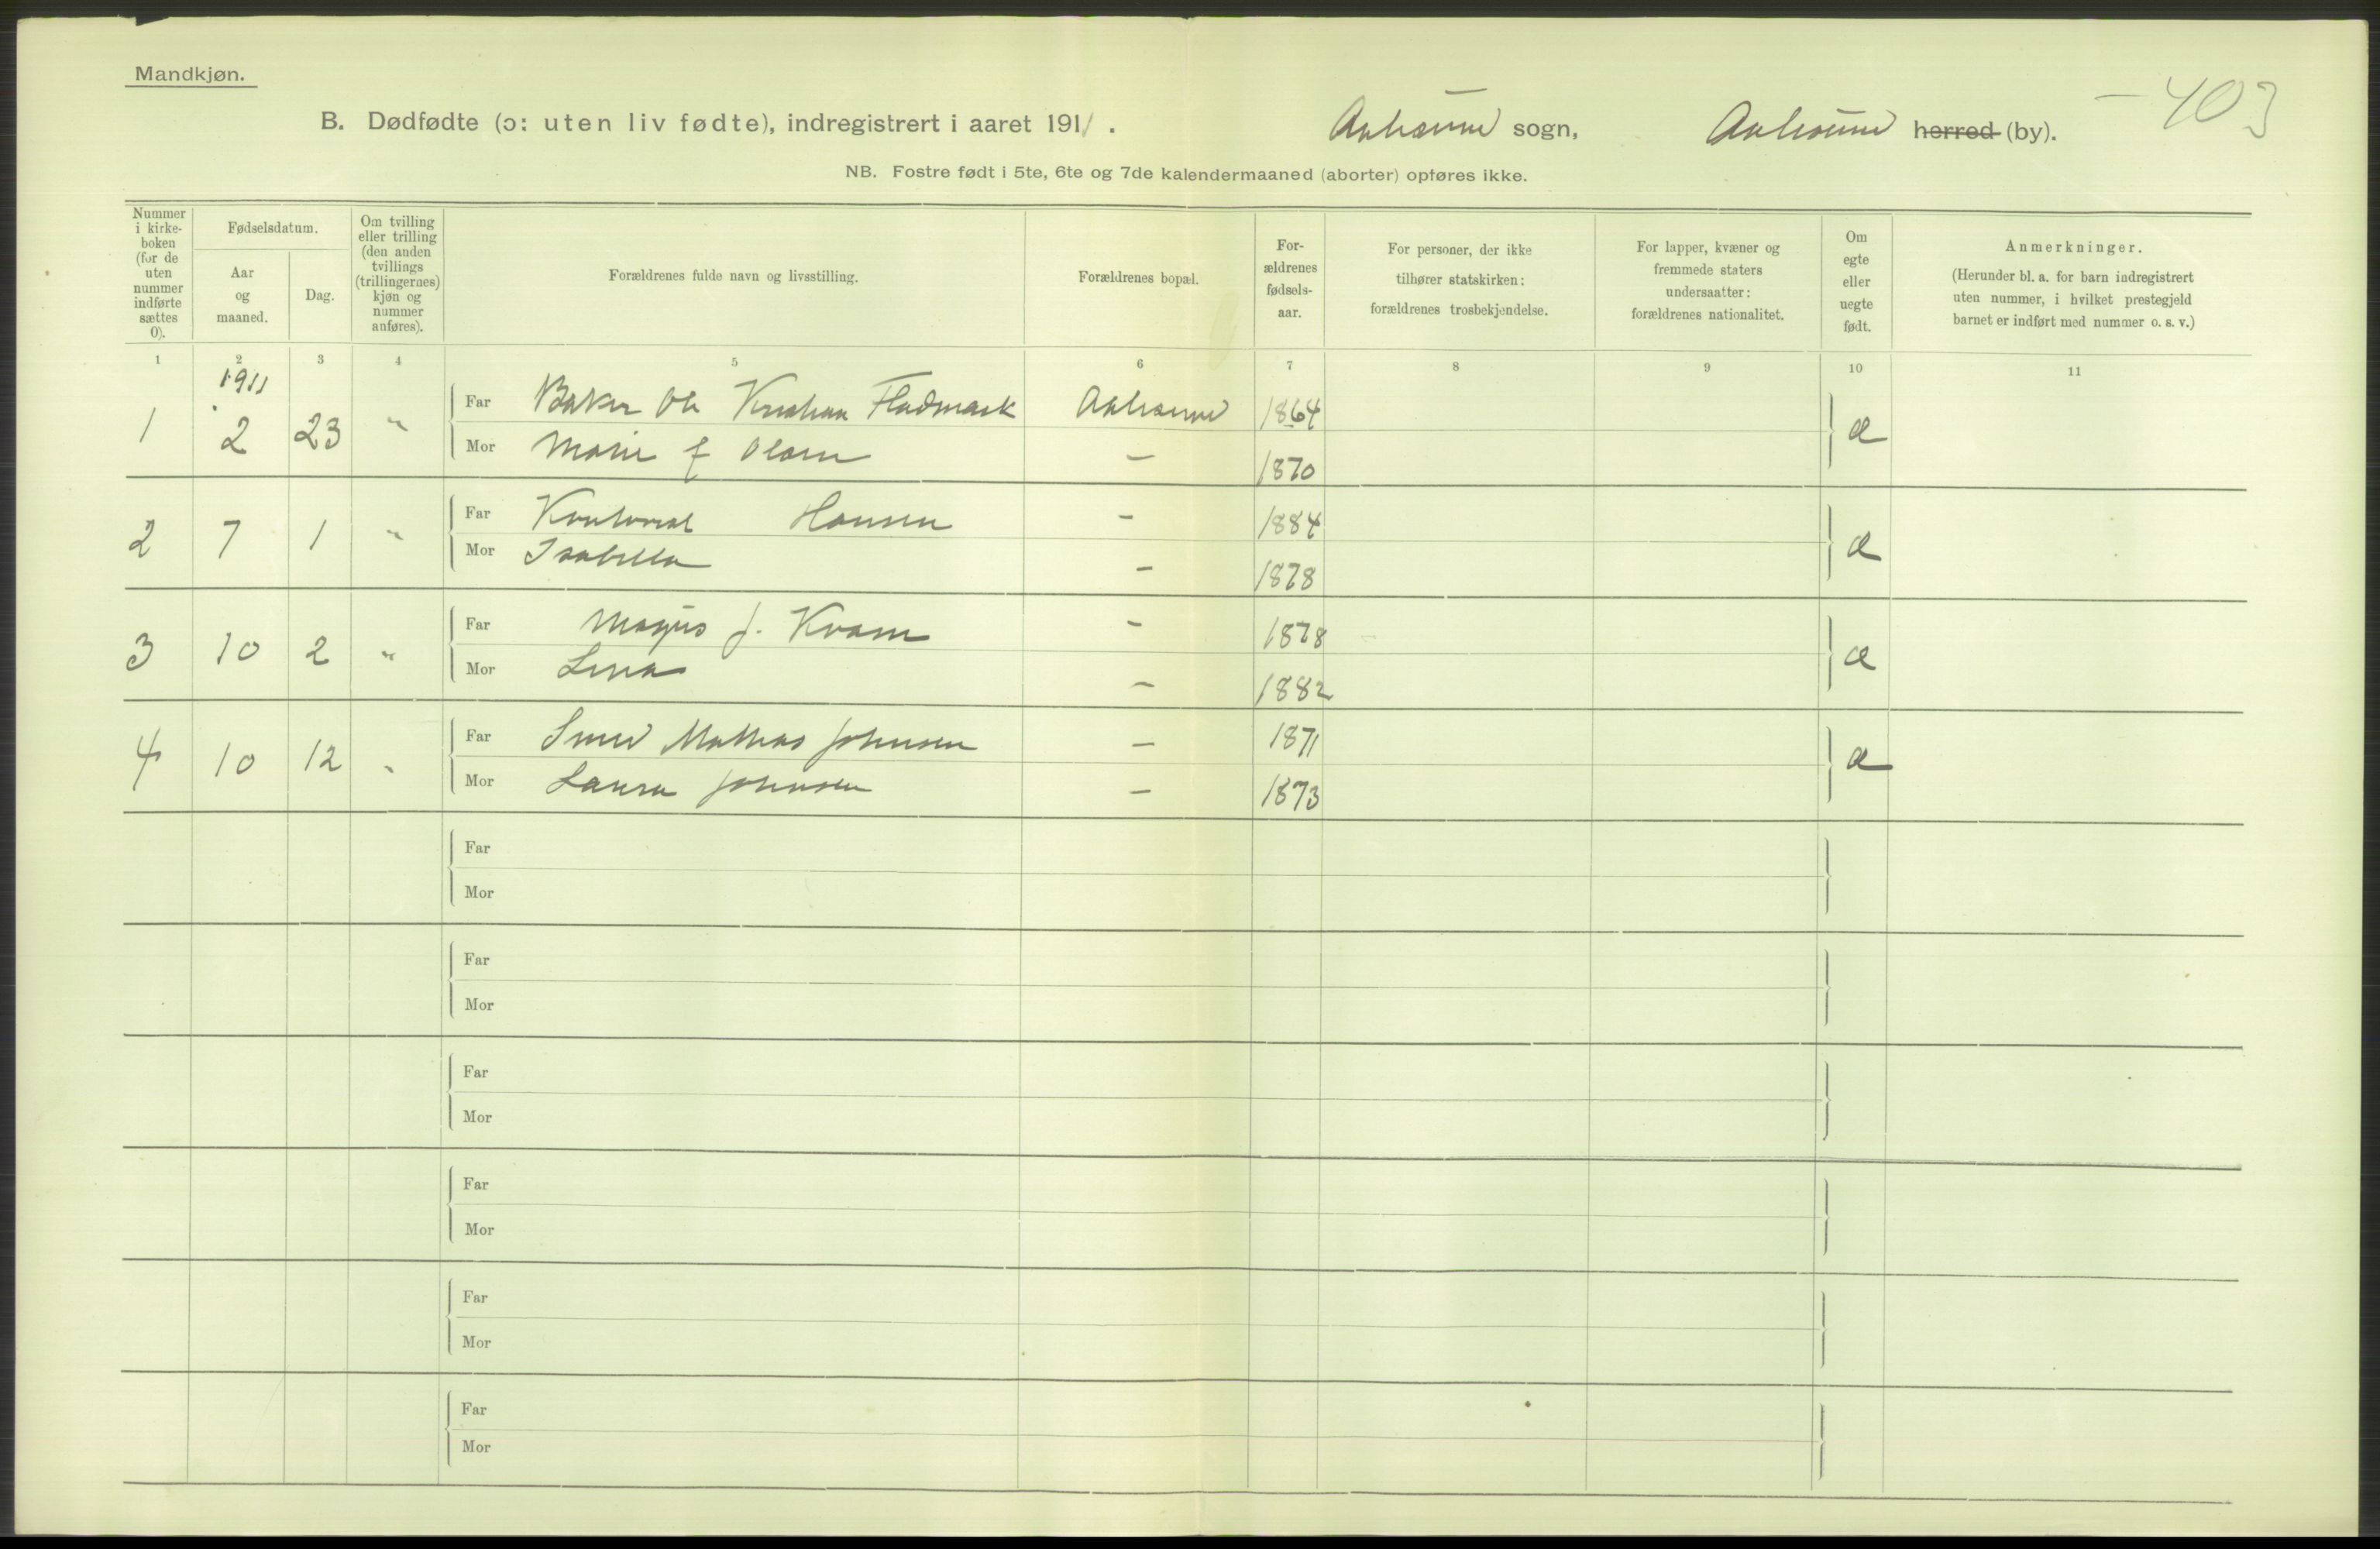 Mandkjøn.
B. Dødfødte (ɔ: uten liv fødte), indregistrert i aaret 1911. Aalesund sogn, Aalesund herred (by). 403
NB. Fostre født i 5te, 6te og 7de kalendermaaned (aborter) opføres ikke.
Nummer i kirke-boken (for de uten nummer indførte sættes 0).
Fødselsdatum.
Aar og maaned.
Dag.
Om tvilling eller trilling (den anden tvillings (trillingernes) kjøn og nummer anføres).
Forældrenes fulde navn og livsstilling.
Forældrenes bopæl.
For-ældrenes fødsels-aar.
For personer, der ikke tilhører statskirken: forældrenes trosbekjendelse.
For lapper, kvæner og fremmede staters undersaatter: forældrenes nationalitet.
Om egte eller uegte født.
Anmerkninger.
(Herunder bl. a. for barn indregistrert uten nummer, i hvilket prestegjeld barnet er indført med nummer o. s. v.)
1 2 3 4 5 6 7 8 9 10 11
1911
1 2 23 " Far Baker Ole Kristian Fladmark Aalesund 1864 æ
Mor Marie f Olsen — 1870
2 7 1 " Far Kontorist Hansen — 1884 æ
Mor Isabella — 1878
3 10 2 " Far Magnus J. Kvam — 1878 æ
Mor Lina — 1882
4 10 12 " Far Smed Mathias Johnsen — 1871 æ
Mor Laura Johnsen — 1873
Far
Mor
Far
Mor
Far
Mor
Far
Mor
Far
Mor
Far
Mor